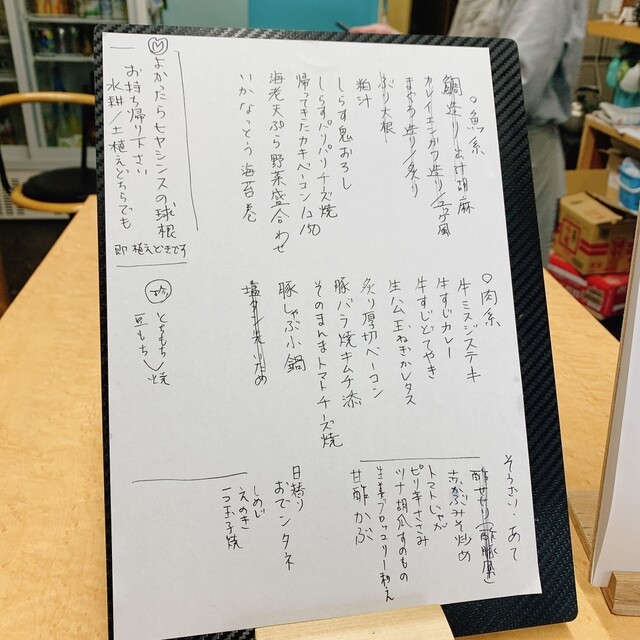 ○魚系
鯛造り 山け胡麻
カレイエンガワ造り
まぐろ造り/炙り
ぶり大根
粕汁
しらす鬼おろし
しらすパリパリチーズ焼
帰ってきたカキベーコン1コ150
海老天ぷら野菜盛合わせ
いかなっとう海苔巻
よかったらヒヤシンスの球根
お持ち帰り下さい
水耕/土植えどちらでも
即植えどきです
○肉系
牛ミスジステーキ
牛すじカレー
牛すじどてやき
生ハム玉ねぎかレタス
炙り厚切ベーコン
豚バラ焼キムチ添
そのまんまトマトチーズ焼
豚しゃぶ小鍋
とちもち
豆もち
焼
そろむり あて
赤かぶみそ炒め
トマトじゃが
ピリ辛ささみ
ツナ胡瓜すのもの
生姜ブロッコリー和え
甘酢かぶ
日替り
おでンタネ
しめじ
えのき
玉子焼